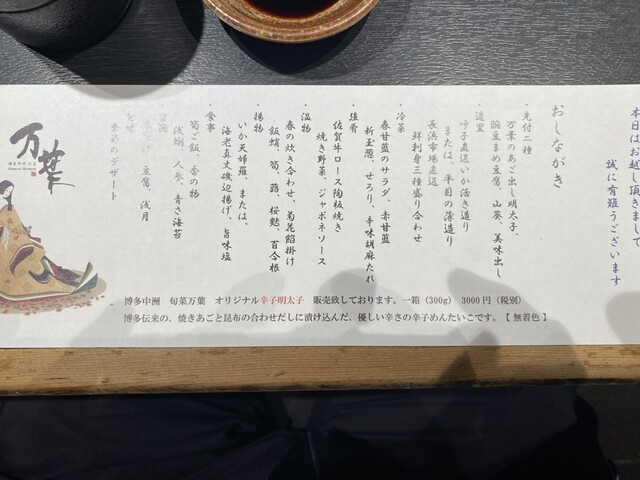 本日はお越し頂きまして
誠に有難うございます
おしながき
・先付二種
万葉のあご出し明太子、
豌豆まめ豆腐、山葵、美味出し
・造里
呼子直送いか活き造り
または、平目の薄造り
長浜市場直送
鮮刺身三種盛り合わせ
・冷菜
春甘藍のサラダ、赤甘藍
新玉葱、せろり、辛味胡麻たれ
・強肴
佐賀牛ロース陶板焼き
焼き野菜、ジャポネソース
・温物
春の炊き合わせ、菊花餡掛け
飯蛸、筍、蕗、桜麩、百合根
・揚物
いか天婦羅、または、
海老真丈磯辺揚げ、旨味塩
・食事
筍ご飯、香の物
浅蜊、人参、青さ海苔
豆腐、浅月
春のデザート
万葉
博多中洲 旬菜万葉 オリジナル辛子明太子 販売致しております。一箱（300g） 3000円（税別）
博多伝来の、焼きあごと昆布の合わせだしに漬け込んだ、優しい辛さの辛子めんたいこです。【 無着色 】